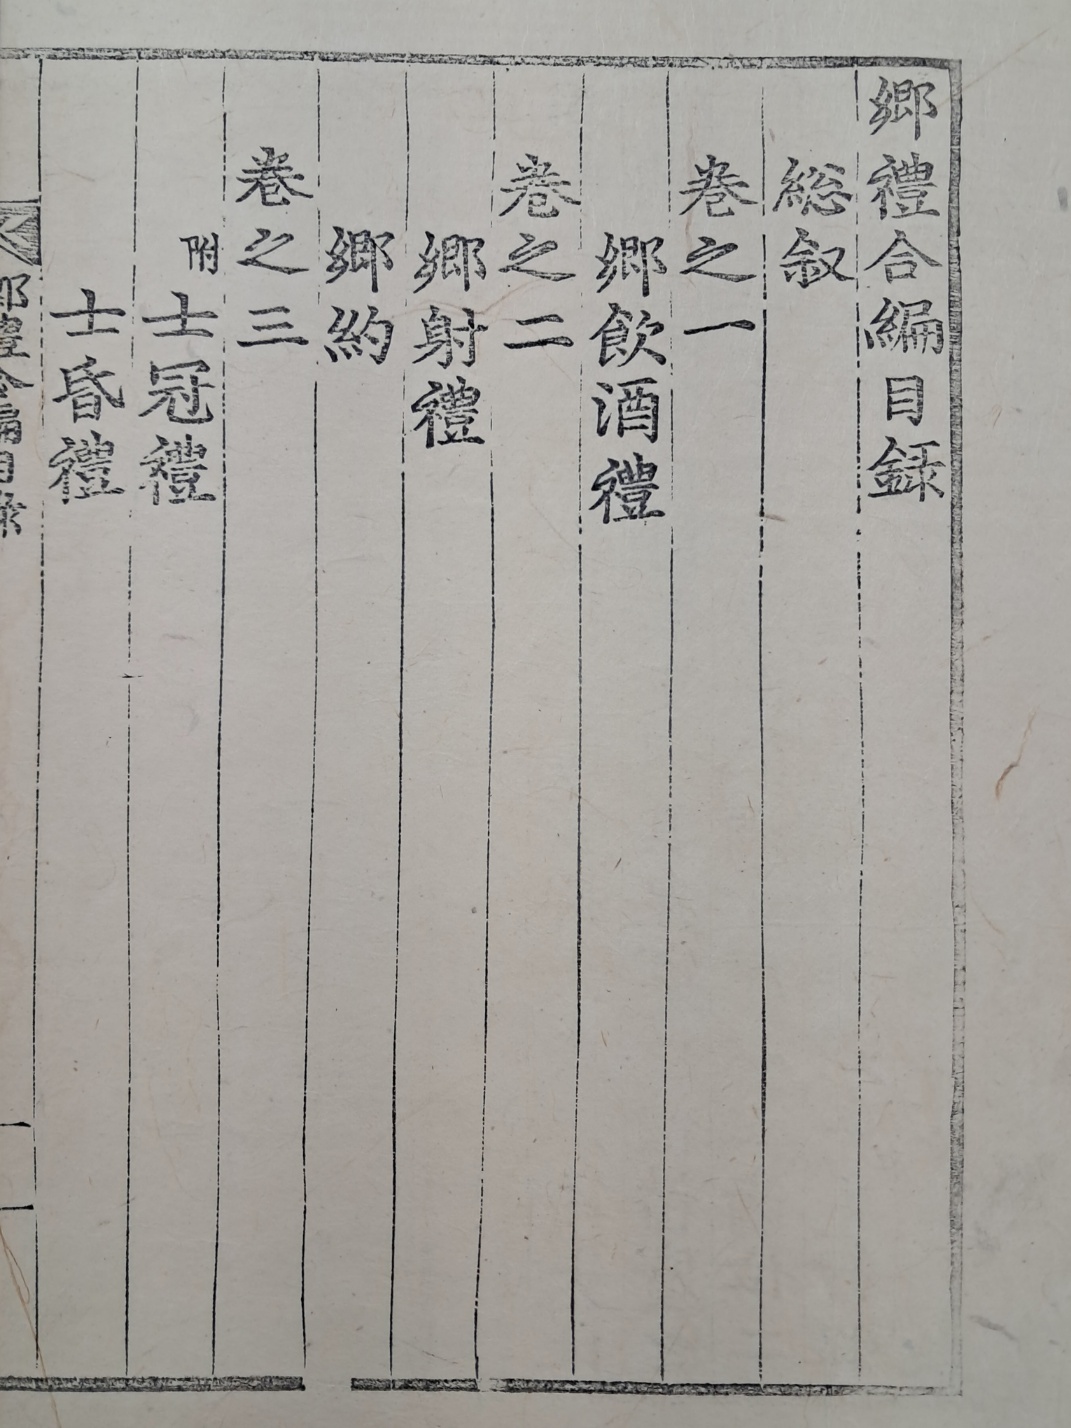 鄉禮合編目録
緫叙
卷之一
鄉飲酒禮
卷之二
鄉射禮
鄉約
卷之三
附士冠禮
士昏禮
鄉禮合編目錄
一